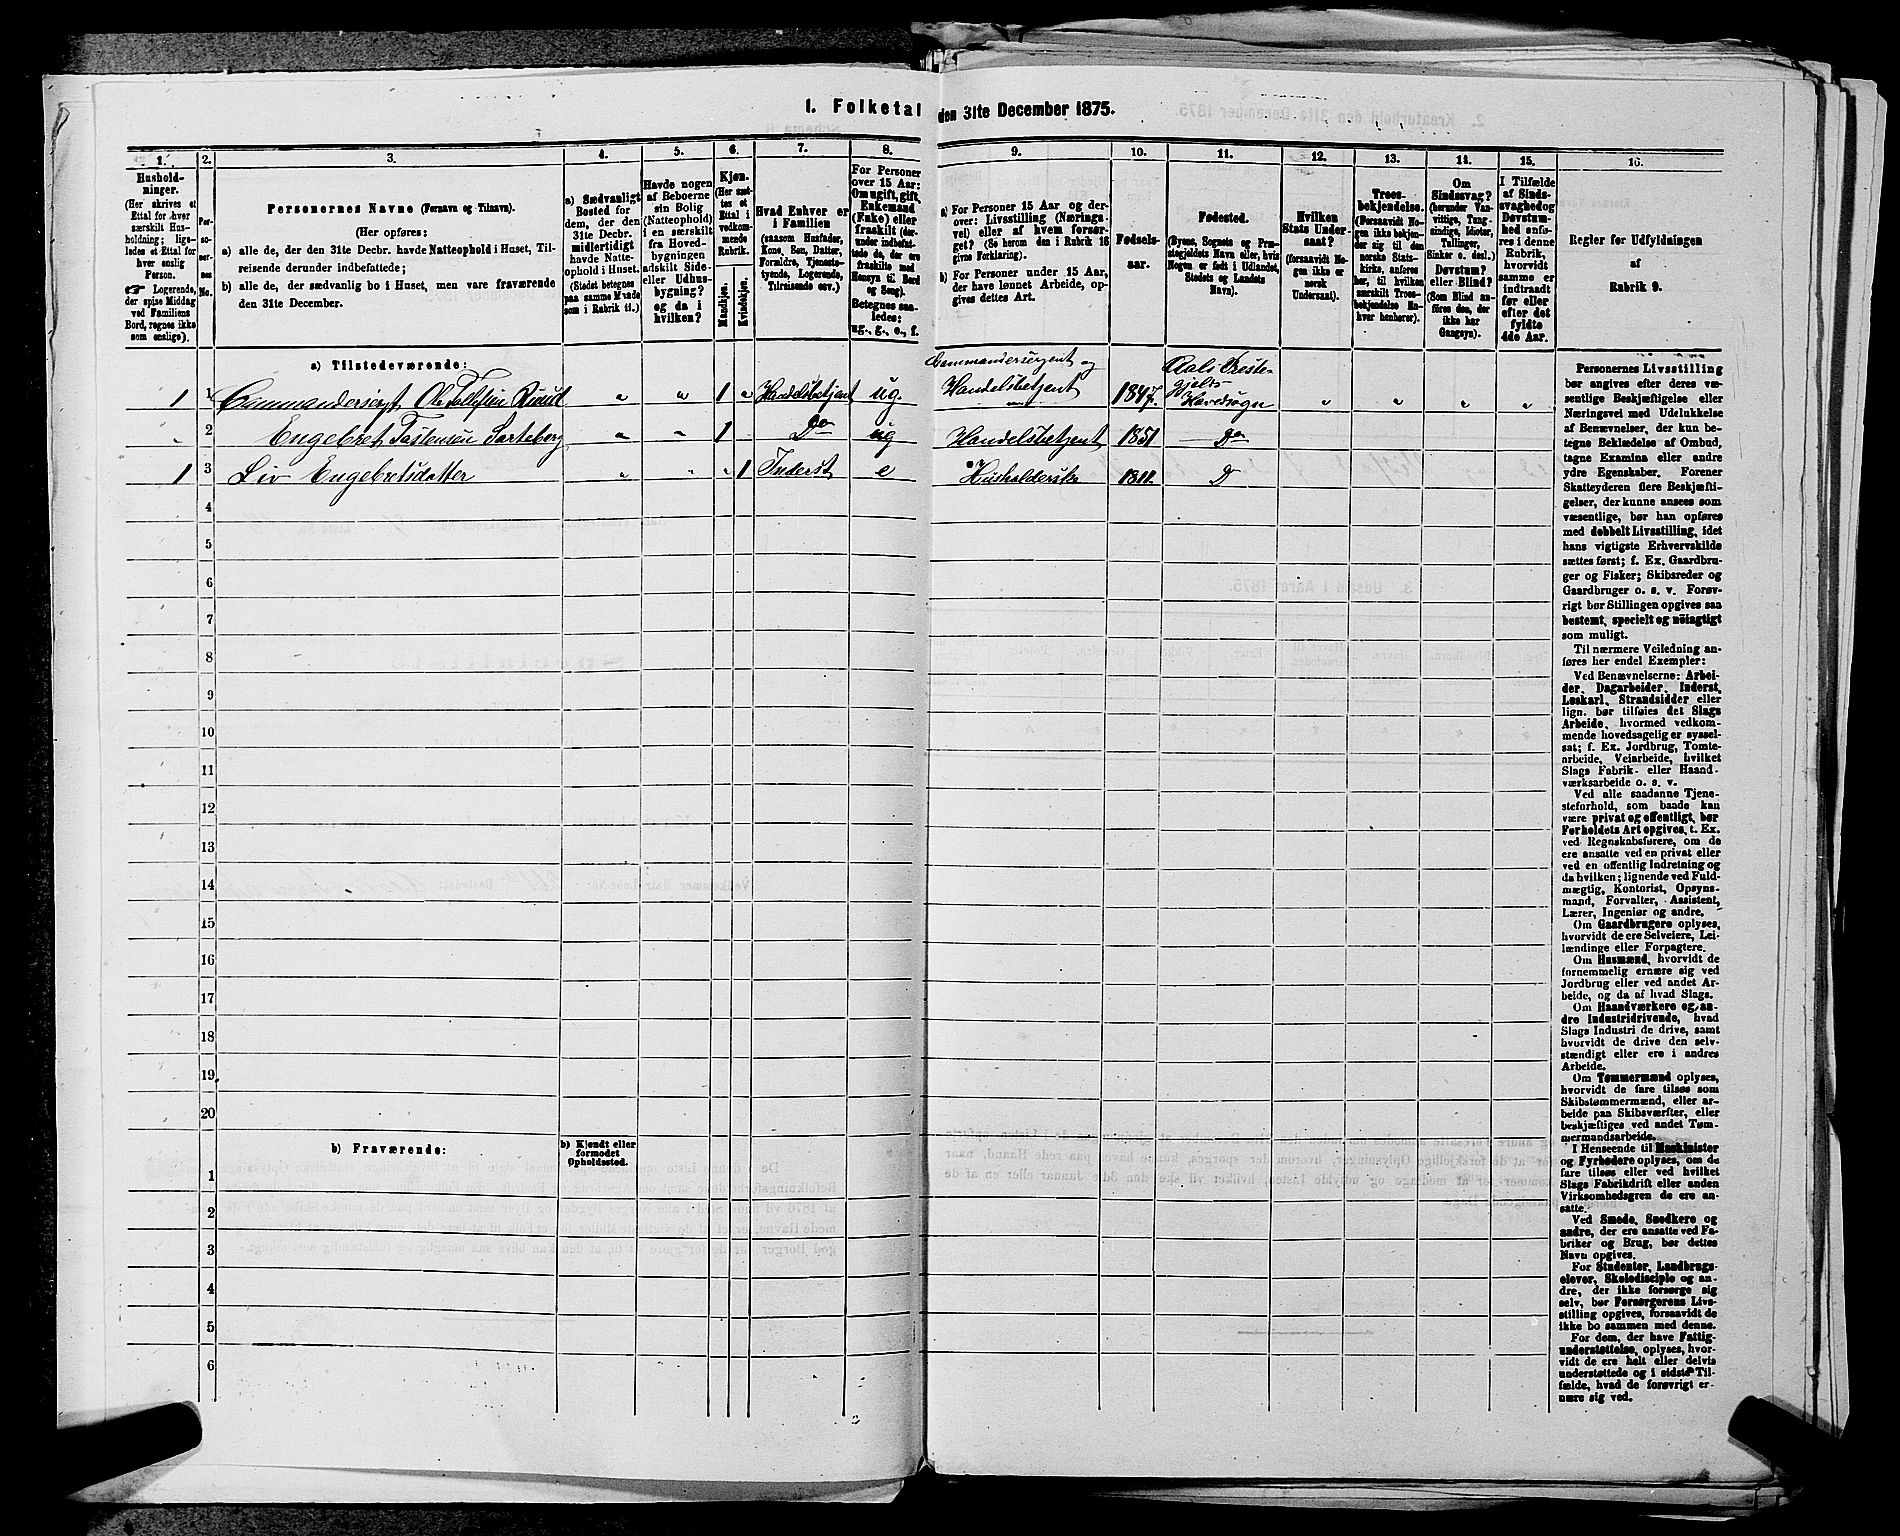 1. Folketal den 31te December 1875.
1. 2. 3. 4. 5. 6. 7. 8. 9. 10. 11. 12. 13. 14. 15. 16.
Hushold-
ninger.
(Her skrives et
Ettal for hver
særskilt Hus-
holdning; lige-
ledes et Ettal for
hver enslig
Person.
☞ Logerende,
der spise Middag
ved Familiens
Bord, regnes ikke
som enslige).
Per-
so-
ner-
nes
No.
Personernes Navne (Fornavn og Tilnavn).
(Her opføres:
a) alle de, der den 31te Decbr. havde Natteophold i Huset, Til-
reisende derunder indbefattede;
b) alle de, der sædvanlig bo i Huset, men vare fraværende
den 31te December.
a) Sædvanligt
Bosted for
dem, der den
31te Decbr.
midlertidigt
havde Natte-
ophold i Huset.
(Stedet betegnes
paa samme Maade
som i Rubrik 11.)
Havde nogen
af Beboerne
sin Bolig
(Natteophold)
i en særskilt
fra Hoved-
bygningen
adskilt Side-
eller Udhus-
bygning?
og da i
hvilken?
Kjøn.
(Her sæt-
tes et
Ettal i
vedkom-
mende
Rubrik.
Mandkjøn.
Kvindekjøn.
Hvad Enhver er
i Familien
(saasom Husfader,
Kone, Søn, Datter,
Forældre, Tjeneste-
tyende, Logerende,
Tilreisende osv.)
For Personer
over 15 Aar:
Om ugift, gift,
Enkemand
(Enke) eller
fraskilt (der-
under indbefat-
tede de, som ere
fraskilte med
Hensyn til Bord
og Seng).
Betegnes saa-
ledes:
ug., g., e., f.
a) For Personer 15 Aar og der-
over: Livsstilling (Nærings-
vei) eller af hvem forsør-
get? (Se herom den i Rubrik 16
givne Forklaring).
b) For Personer under 15 Aar,
der have lønnet Arbeide, op-
gives dettes Art.
Fødsels-
aar.
Fødested.
(Byens, Sognets og Præ-
stegjeldets Navn eller, hvis
Nogen er født i Udlandet,
Stedets og Landets
Navn).
Hvilken
Stats Under-
saat?
(forsaavidt No-
gen ikke er
norsk
Undersaat).
Troes-
bekjendelse.
(Forsaavidt No-
gen ikke bekjen-
der sig til den
norske Stats-
kirke, anføres
her, til hvilken
særskilt Troes-
bekjendelse En-
hver henhører).
Om
Sindssvag?
(herunder Van-
vittige, Tung-
sindige, Idioter,
Tullinger,
Sinker o. desl.)
Døvstum?
eller Blind?
(Som Blind an-
føres den, der
ikke har
Gangsyn).
I Tilfælde
af Sinds-
svaghed og
Døvstum-
hed anfø-
res i denne
Rubrik,
hvorvidt
samme er
indtraadt
før eller
efter det
fyldte
4de Aar.
Regler for Udfyldningen
af
Rubrik 9.
a) Tilstedeværende:
1 1 Commandersergt Ole Tollefsen Ruud " " 1 " Handelsbetjent ug. Commandersergent og Handelsbetjent 1847. Aals Præste-
gjeld Hovedsogn " " " "
" 2 Engebret Tostensen Sarteberg " " 1 Do ug Handelsbetjent 1851 Do
1 3 Liv Engebretsdatter " " " 1 Inderst e Husholderske 1811. D
4
5
6
7
8
9
10
11
12
13
14
15
16
17
18
19
20
b) Fraværende: b) Kjendt eller
formodet
Opholdssted.
1
2
3
4
5
6
Personernes Livsstilling
bør angives efter deres væ-
sentlige Beskjæftigelse eller
Næringsvei med Udelukkelse
af Benævnelser, der kun be-
tegne Beklædelse af Ombud,
tagne Examina eller andre
ydre Egenskaber. Forener
Skatteyderen flere Beskjæfti-
gelser, der kunne ansees som
væsentlige, bør han opføres
med dobbelt Livsstilling, idet
hans vigtigste Erhvervskilde
sættes først; f. Ex. Gaardbru-
ger og Fisker; Skibsreder og
Gaardbruger o. s. v. Forøv-
rigt bør Stillingen opgives saa
bestemt, specielt og nøiagtigt
som muligt.
Til nærmere Veiledning an-
føres her endel Exempler:
Ved Benævnelserne: Arbei-
der, Dagarbeider, Inderst,
Løskarl, Strandsidder eller
lign. bør tilføies det Slags
Arbeide, hvormed vedkom-
mende hovedsagelig er syssel-
sat; f. Ex. Jordbrug, Tomte-
arbeide, Veiarbeide, hvilket
Slags Fabrik- eller Haand-
værksarbeide o. s. v.
Ved alle saadanne Tjene-
steforhold, som baade kan
være privat og offentligt, bør
Forholdets Art opgives, t. Ex.
ved Regnskabsførere, om de
ere ansatte ved en privat eller
ved en offentlig Indretning og
da hvilken; lignende ved Fuld-
mægtig, Kontorist, Opsyns-
mand, Forvalter, Assistent,
Lærer, Ingeniør og andre.
Om Gaardbrugere oplyses,
hvorvidt de ere Selveiere, Lei-
lændinge eller Forpagtere.
Om Husmænd, hvorvidt de
fornemmelig ernære sig ved
Jordbrug eller ved andet Ar-
beide, og da af hvad Slags.
Om Haandværkere og an-
dre Industridrivende, hvad
Slags Industri de drive, samt
hvorvidt de drive den selv-
stændigt eller ere i andres
Arbeide.
Om Tømmermænd oplyses,
hvorvidt de fare tilsøs som
Skibstømmermænd, eller ar-
beide paa Skibsværfter, eller
beskjæftiges ved andet Tøm-
mermandsarbeide.
I Henseende til Maskinister
og Fyrbødere oplyses, om de
fare tilsøs eller ved hvilket
Slags Fabrikdrift eller anden
Virksomhedsgren de ere an-
satte.
Ved Smede, Snedkere og
andre, der ere ansatte ved Fa-
briker og Brug, bør dettes
Navn opgives.
For Studenter, Landbrugs-
elever, Skoledisciple og an-
dre, der ikke forsørge sig
selv, bør Forsørgerens Livs-
stilling opgives, forsaavidt de
ikke bo sammen med denne.
For dem, der have Fattig-
understøttelse, oplyses, hvor-
vidt de ere helt eller delvis
understøttede og i sidste Til-
fælde, hvad de forøvrigt er-
nære sig ved.